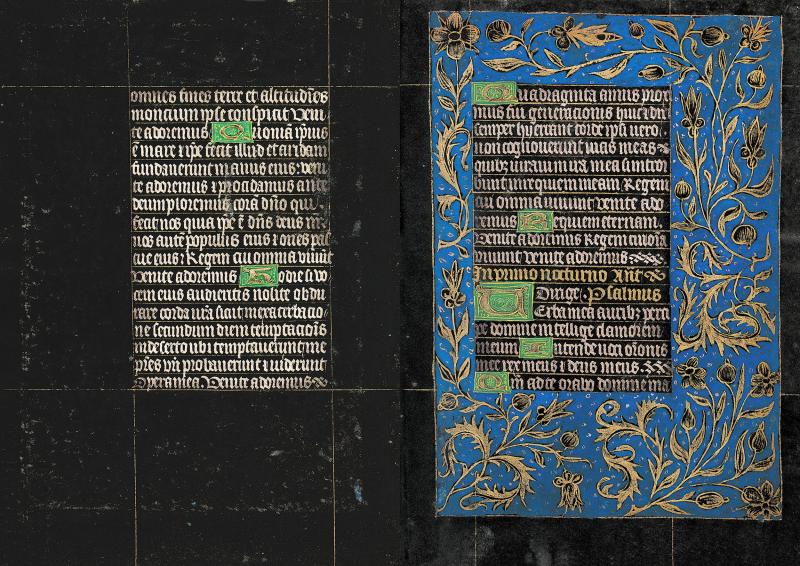 omnes fines terre et altitudīes
moncium ipse conspicit Veni
te adoremus Quoniā ipius
ē mare ⁊ ipe fecit illud et aridam
fundauerunt manus eius veni
te adoremus ⁊ procidamus ante
deum ploremus corā dño qui
fecit nos quia ipe ē dñs deus
nos autē populus eius ⁊ oues pas
cue eius Regem cui omnia viuūt
Venite adoremus Hodie si vo
cem eius audieritis nolite obdu
rare corda vrā sicut in exacerbacio
ne secundum diem temptacōis
in deserto ubi temptauerunt me
pr̄es vr̄i probauerunt ⁊ uiderunt
opera mea Venite adoremus
Quadraginta annis prox
imus fui generacionis huic ⁊ dixi
semper hij errant corde ipsi uero
non cognouerunt uias meas
quibꝫ iuraui in ira mea si introi
bunt in requiem meam Regem
cui omnia uiuunt venite ado
remus Requiem eternam
Venite adoremus Regem cui oīa
uiuunt Venite adoremus
In primo nocturno Añt
Dirige Psalmus
Verba mea auribꝫ perci
pe domine intellige clamorem
meum Intende uoci orōnis
mee rex meus ⁊ deus meus
Qm̄ ad te orabo domine ma